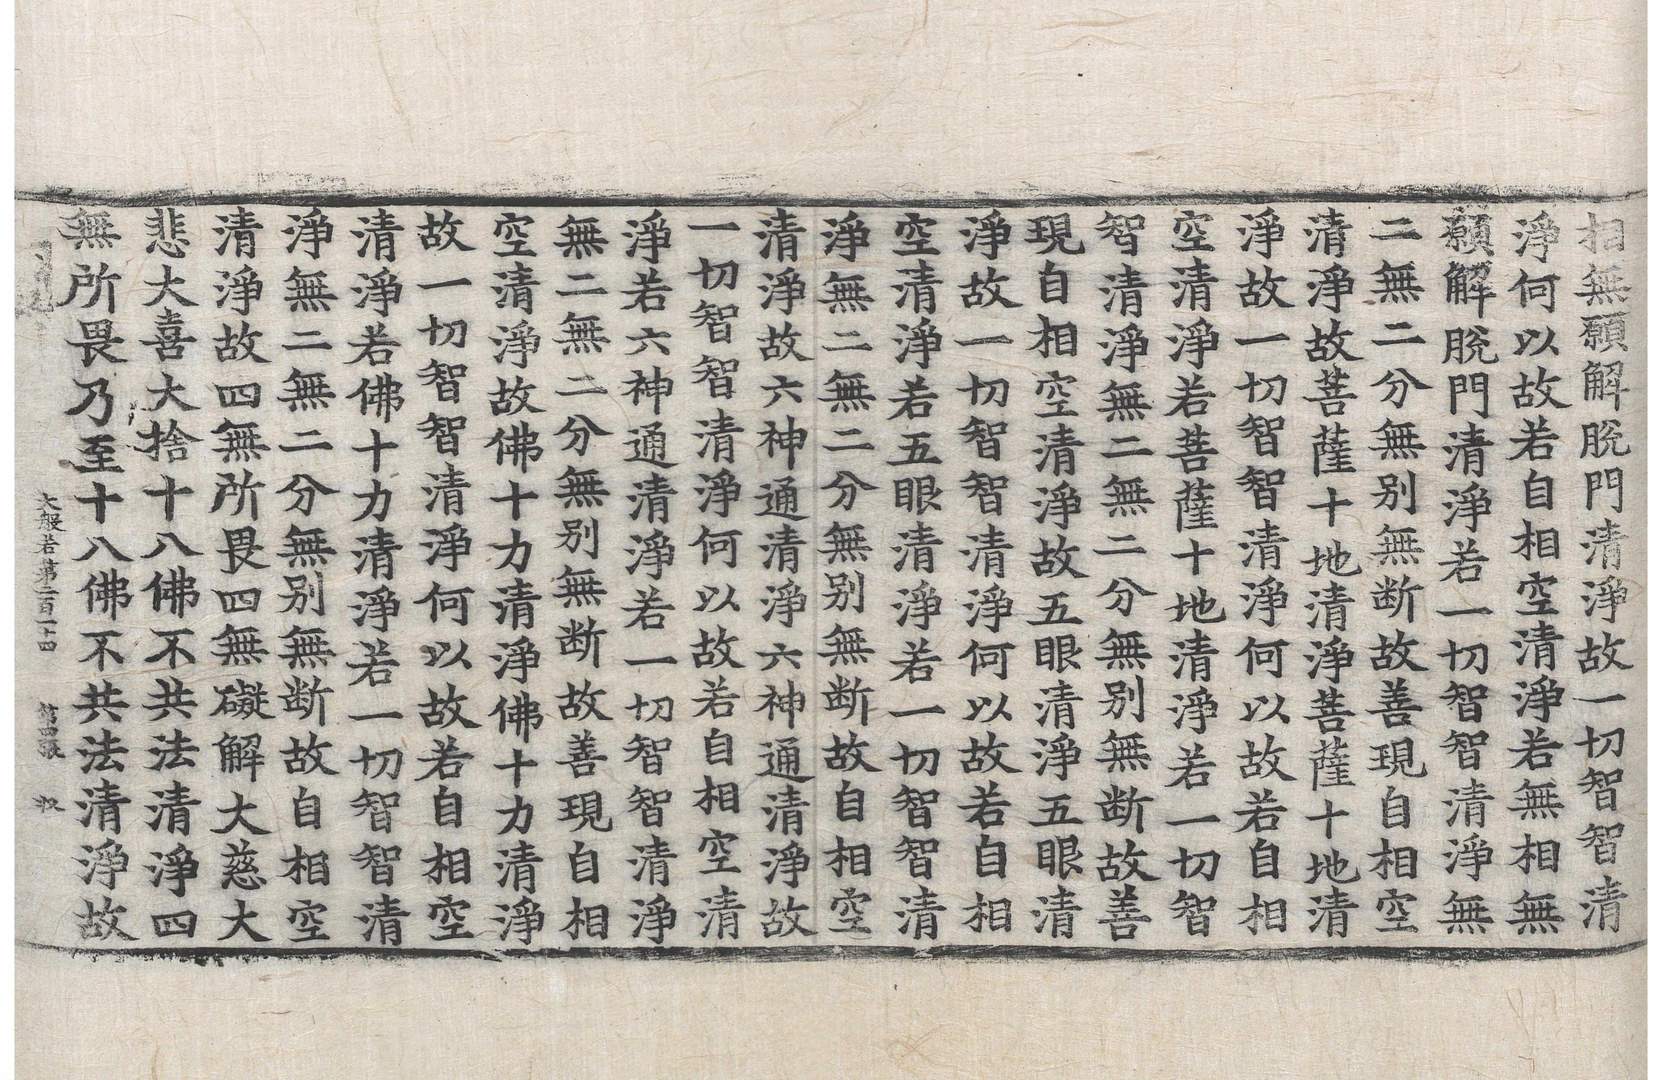 相無願解脫門清淨故一切智智清
淨何以故若自相空清淨若無相無
願解脫門清淨若一切智智清淨無
二無二分無別無断故善現自相空
清淨故菩薩十地清淨菩薩十地清
淨故一切智智清淨何以故若自相
空清淨若菩薩十地清淨若一切智
智清淨無二無二分無別無断故善
現自相空清淨故五眼清淨五眼清
淨故一切智智清淨何以故若自相
空清淨若五眼清淨若一切智智清
淨無二無二分無別無断故自相空
清淨故六神通清淨六神通清淨故
一切智智清淨何以故若自相空清
淨若六神通清淨若一切智智清淨
無二無二分無別無断故善現自相
空清淨故佛十力清淨佛十力清淨
故一切智智清淨何以故若自相空
清淨若佛十力清淨若一切智智清
淨無二無二分無別無断故自相空
清淨故四無所畏四無礙解大慈大
悲大喜大捨十八佛不共法清淨四
無所畏乃至十八佛不共法清淨故
大般若第二百一十四 第四張